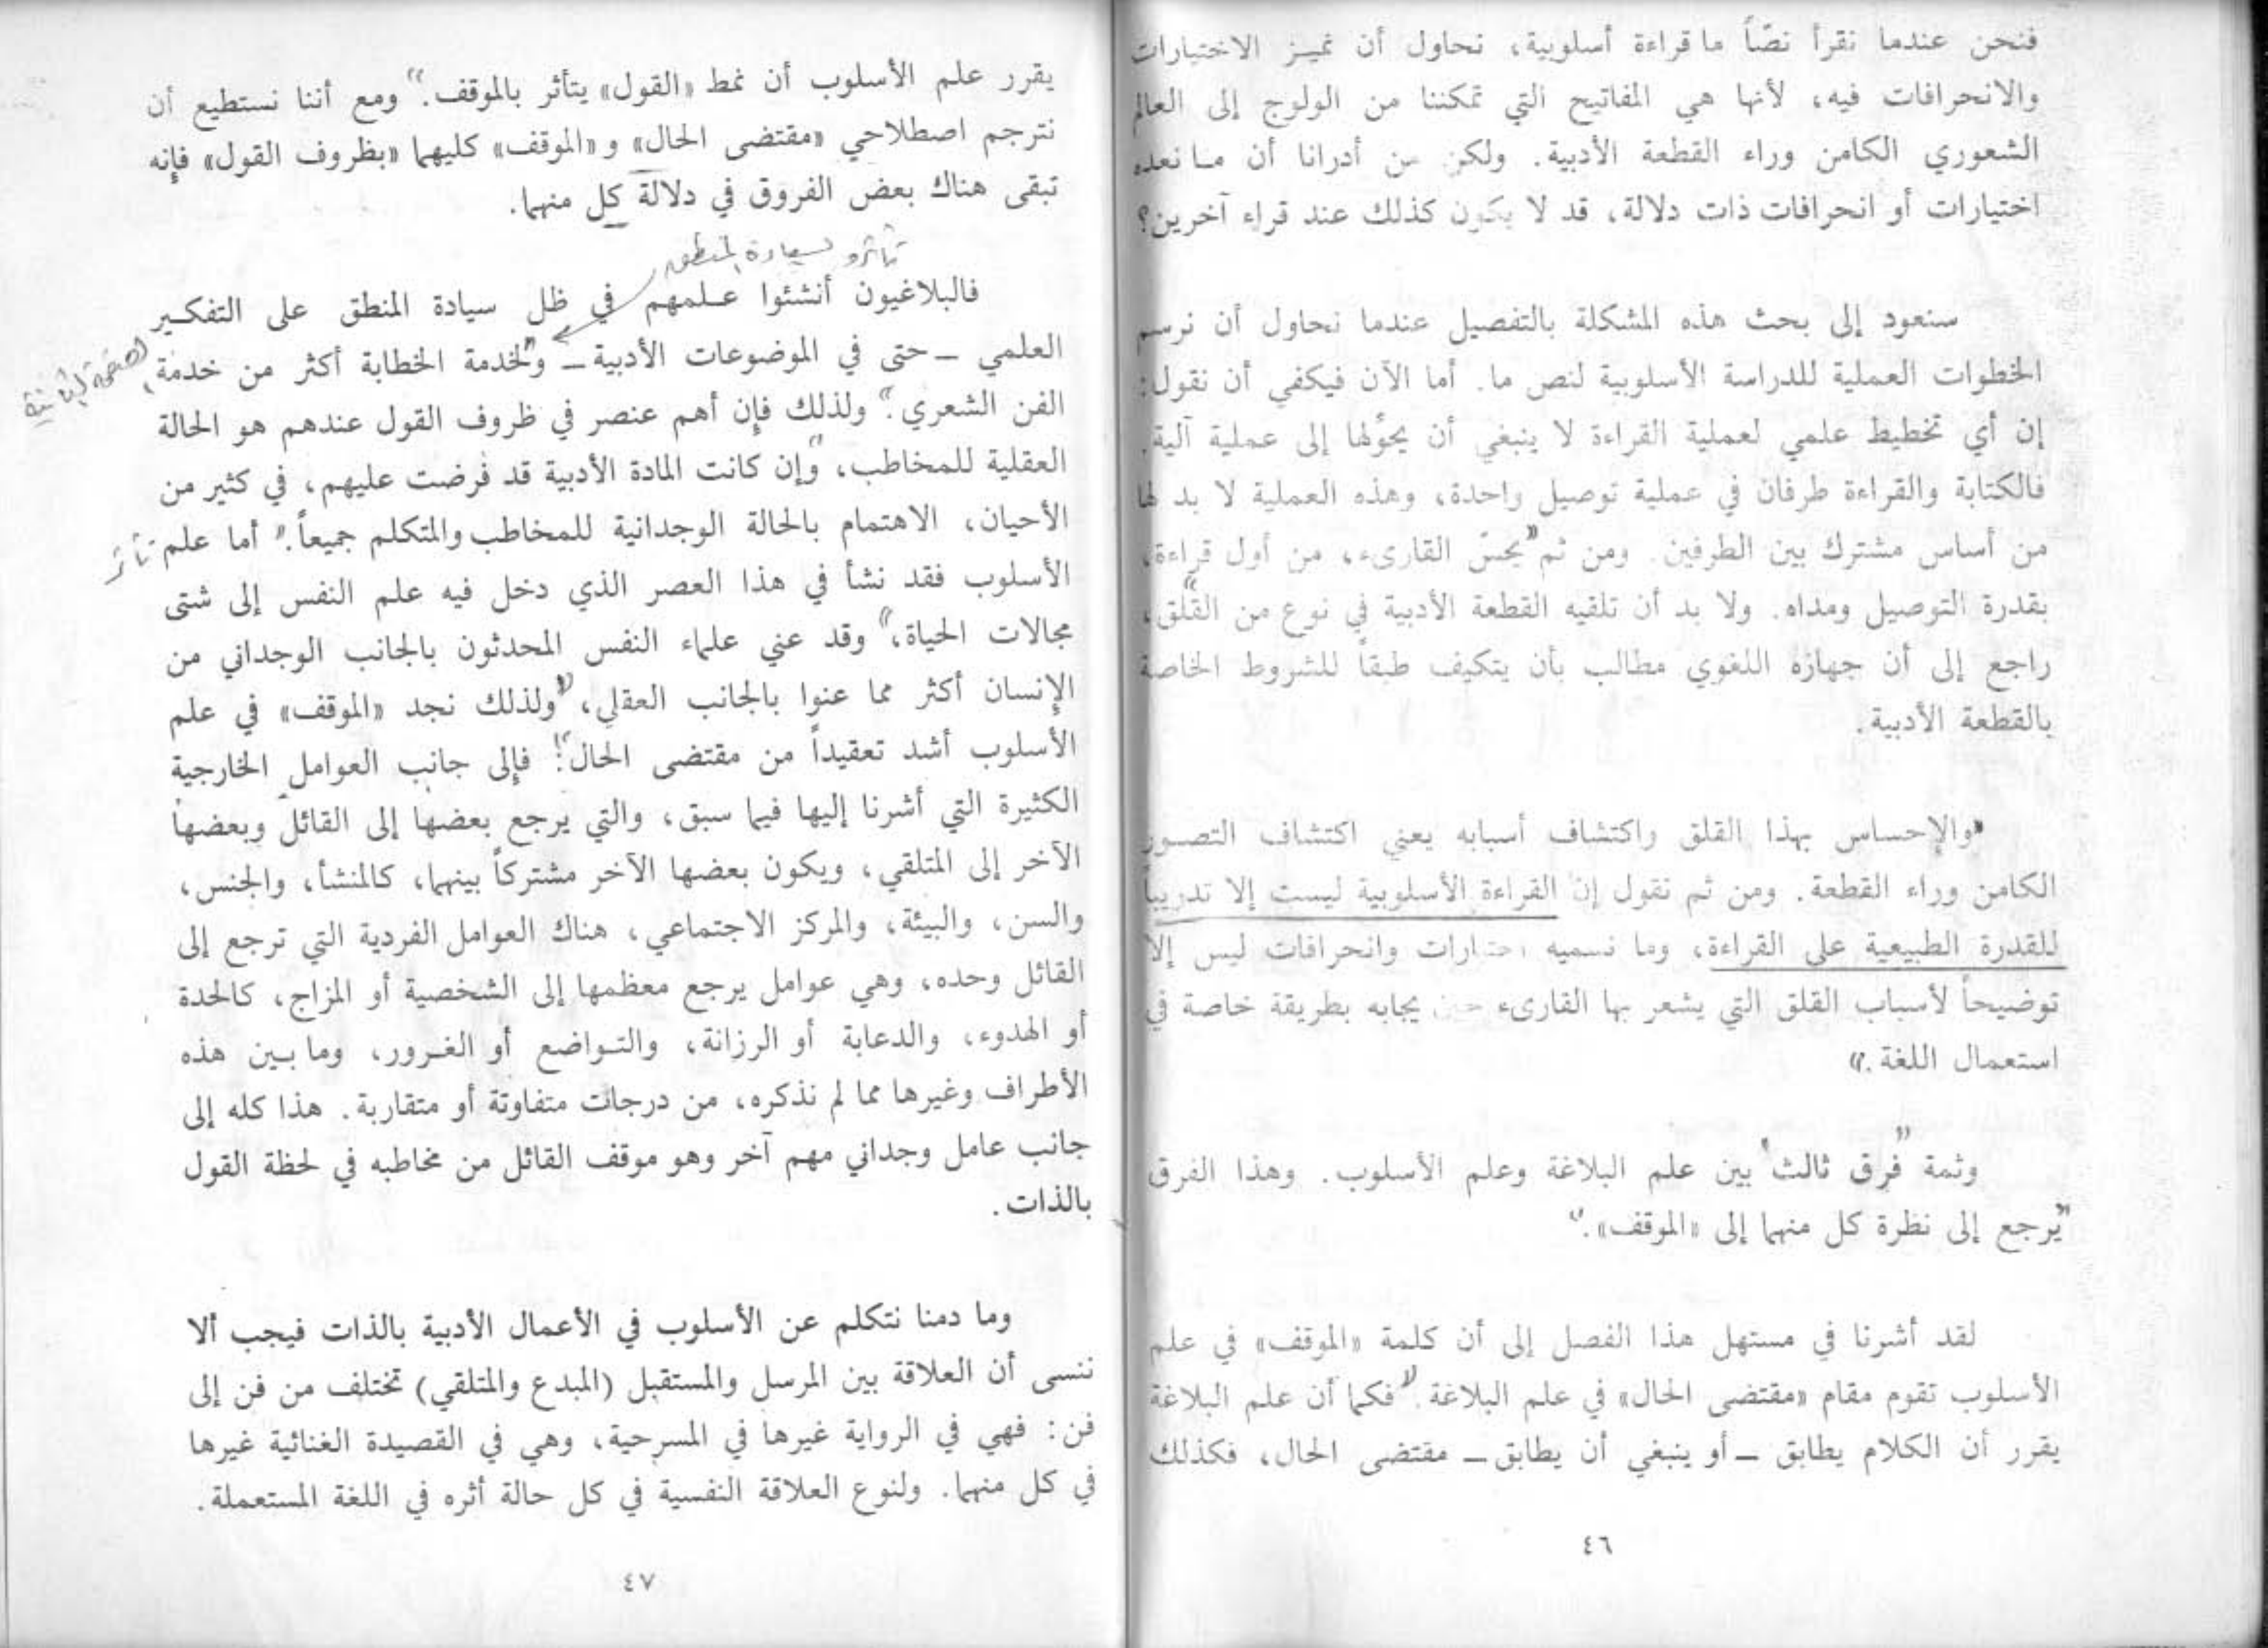 فنحن عندما نقرأ نصّاً ما قراءة أسلوبية، نحاول أن نميـز الاختيارات
والانحرافات فيه، لأنها هي المفاتيح التي تمكننا من الولوج إلى العالم
الشعوري الكامن وراء القطعة الأدبية. ولكن من أدرانا أن مـا نعده
اختيارات أو انحرافات ذات دلالة، قد لا يكون كذلك عند قراء آخرين؟
سنعود إلى بحث هذه المشكلة بالتفصيل عندما نحاول أن نرسم
الخطوات العملية للدراسة الأسلوبية لنص ما. أما الآن فيكفي أن نقول:
إن أي تخطيط علمي لعملية القراءة لا ينبغي أن يحوّلها إلى عملية آلية.
فالكتابة والقراءة طرفان في عملية توصيل واحدة، وهذه العملية لا بد لها
من أساس مشترك بين الطرفين. ومن ثم يحسّ القارىء، من أول قراءة،
بقدرة التوصيل ومداه. ولا بد أن تلقيه القطعة الأدبية في نوع من القلق،
راجع إلى أن جهازه اللغوي مطالب بأن يتكيف طبقاً للشروط الخاصة
بالقطعة الأدبية.
والإحساس بهذا القلق واكتشاف أسبابه يعني اكتشاف التصـور
الكامن وراء القطعة. ومن ثم نقول إن القراءة الأسلوبية ليست إلا تدريباً
للقدرة الطبيعية على القراءة، وما نسميه اختيارات وانحرافات ليس إلا
توضيحاً لأسباب القلق التي يشعر بها القارىء حين يجابه بطريقة خاصة في
استعمال اللغة.
وثمة فرق ثالث بين علم البلاغة وعلم الأسلوب. وهذا الفرق
يرجع إلى نظرة كل منهما إلى «الموقف».
لقد أشرنا في مستهل هذا الفصل إلى أن كلمة «الموقف» في علم
الأسلوب تقوم مقام «مقتضى الحال» في علم البلاغة. فكما أن علم البلاغة
يقرر أن الكلام يطابق ـ أو ينبغي أن يطابق ـ مقتضى الحال، فكذلك
٤٦
يقرر علم الأسلوب أن نمط «القول» يتأثر بالموقف. ومع أننا نستطيع أن
نترجم اصطلاحي «مقتضى الحال» و«الموقف» كليهما «بظروف القول» فإنه
تبقى هناك بعض الفروق في دلالة كل منهما.
تأثره لسيادة المنطق
فالبلاغيون أنشئوا عـلمهم في ظل سيادة المنطق على التفكـير
العلمي ـ حتى في الموضوعات الأدبية ـ ولخدمة الخطابة أكثر من خدمة
الفن الشعري. ولذلك فإن أهم عنصر في ظروف القول عندهم هو الحالة
العقلية للمخاطب، وإن كانت المادة الأدبية قد فرضت عليهم، في كثير من
الأحيان، الاهتمام بالحالة الوجدانية للمخاطب والمتكلم جميعاً. أما علم
تأثر
الأسلوب فقد نشأ في هذا العصر الذي دخل فيه علم النفس إلى شتى
مجالات الحياة، وقد عني علماء النفس المحدثون بالجانب الوجداني من
الإنسان أكثر مما عنوا بالجانب العقلي، ولذلك نجد «الموقف» في علم
الأسلوب أشد تعقيداً من مقتضى الحال: فإلى جانب العوامل الخارجية
الكثيرة التي أشرنا إليها فيما سبق، والتي يرجع بعضها إلى القائل وبعضها
الآخر إلى المتلقي، ويكون بعضها الآخر مشتركاً بينهما، كالمنشأ، والجنس،
والسن، والبيئة، والمركز الاجتماعي، هناك العوامل الفردية التي ترجع إلى
القائل وحده، وهي عوامل يرجع معظمها إلى الشخصية أو المزاج، كالحدة
أو الهدوء، والدعابة أو الرزانة، والتـواضع أو الغـرور، وما بـين هذه
الأطراف وغيرها مما لم نذكره، من درجات متفاوتة أو متقاربة. هذا كله إلى
جانب عامل وجداني مهم آخر وهو موقف القائل من مخاطبه في لحظة القول
بالذات.
وما دمنا نتكلم عن الأسلوب في الأعمال الأدبية بالذات فيجب ألا
ننسى أن العلاقة بين المرسل والمستقبل (المبدع والمتلقي) تختلف من فن إلى
فن: فهي في الرواية غيرها في المسرحية، وهي في القصيدة الغنائية غيرها
في كل منهما. ولنوع العلاقة النفسية في كل حالة أثره في اللغة المستعملة.
٤٧